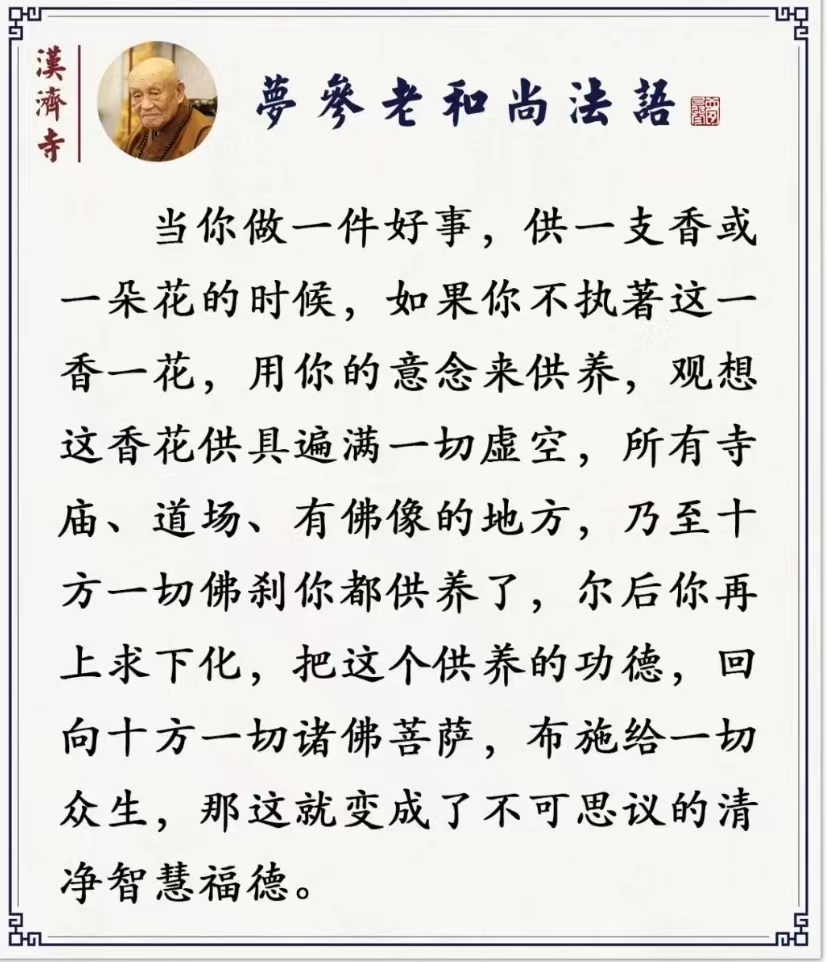 漢濟寺
夢參老和尚法語
当你做一件好事，供一支香或
一朵花的时候，如果你不执著这一
香一花，用你的意念来供养，观想
这香花供具遍满一切虚空，所有寺
庙、道场、有佛像的地方，乃至十
方一切佛刹你都供养了，尔后你再
上求下化，把这个供养的功德，回
向十方一切诸佛菩萨，布施给一切
众生，那这就变成了不可思议的清
净智慧福德。